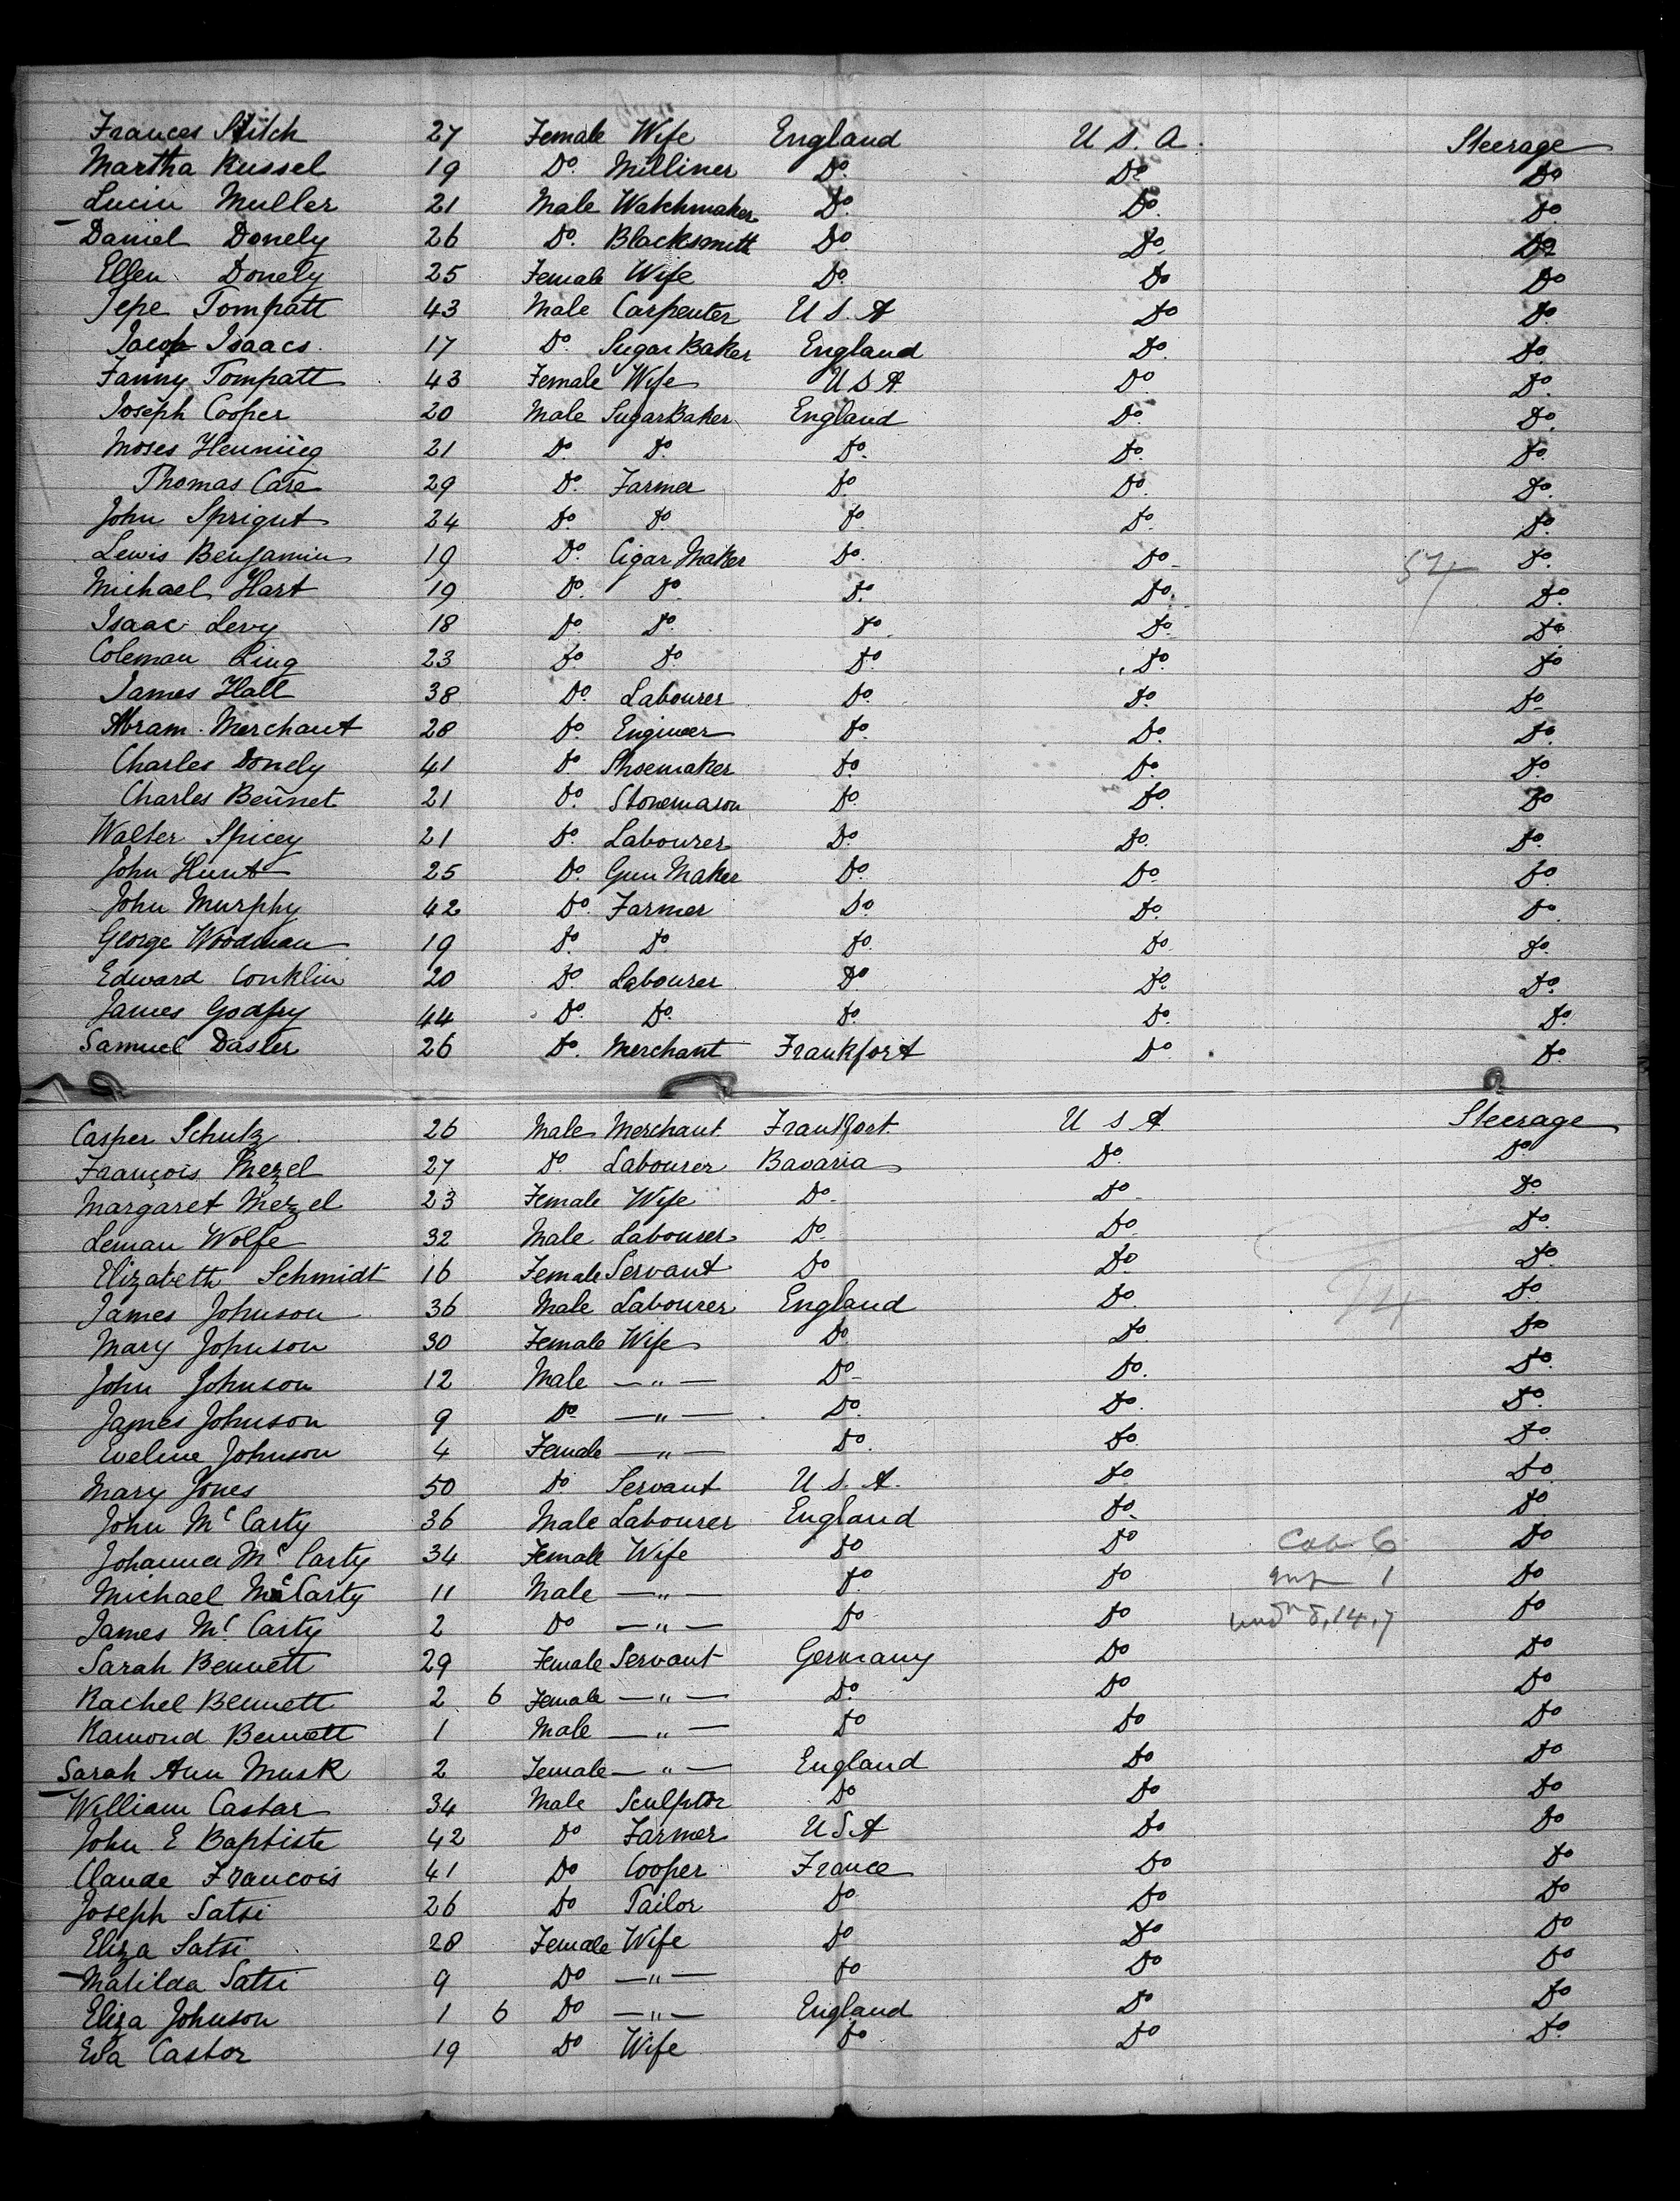 Frances Stitch 27 Female Wife England U S. A. Steerage
Martha Russel 19 Do. Milliner Do. Do. Do
Lucin Muller 21 Male Watchmaker Do. Do. Do.
Daniel Donely 26 Do. Blacksmith Do Do. Do
Ellen Donely 25 Female Wife Do. Do Do
Jepe Tompatt 43 Male Carpenter U S. A Do Do.
Jacob Isaacs. 17 Do. Sugar Baker England Do. Do.
Fanny Tompatt 43 Female Wife U S A Do. Do.
Joseph Cooper 20 Male Sugar Baker England Do. Do.
Moses 21 Do. Do. Do. Do. Do.
Thomas Care 29 Do. Farmer Do. Do. Do.
John Sprigut 24 Do. Do. Do. Do. Do.
Lewis Benjamin 19 Do. Cigar Maker Do. Do. 54 Do.
Michael Hart 19 Do. Do. Do. Do. Do.
Isaac Levy 18 Do. Do. Do. Do. Do.
Coleman Ling 23 Do. Do. Do. Do. Do
James Hall 38 Do. Labourer Do. Do. Do.
Abram Merchant 28 Do. Engineer Do. Do. Do.
Charles Donely 41 Do Shoemaker Do. Do. Do.
Charles Bennet 21 Do. Stonemason Do. Do. Do
Walter Spicey 21 Do. Labourer Do. Do. Do.
John Hunt 25 Do. Gun Maker Do. Do. Do.
John Murphy 42 Do. Farmer Do. Do. Do.
George Woodman 19 Do. Do. Do. Do Do.
Edward Conklin 20 Do. Labourer Do Do. Do.
James Godfry 44 Do. Do. Do. Do. Do.
Samuel Dasler 26 Do. Merchant Frankfort Do Do.
Casper Schulz 26 Male Merchant Frankfort U S A Steerage
François Mezel 27 Do. Labourer Bavaria Do. Do
Margaret Mezel 23 Female Wife Do. Do Do.
Leman Wolfe 32 Male Labourer Do. Do. Do.
Elizabeth Schmidt 16 Female Servant Do Do. Do.
James Johnson 36 Male Labourer England Do. 54 Do.
Mary Johnson 30 Female Wife Do. Do. Do
John Johnson 12 Male —"— Do. Do. Do.
James Johnson 9 Do —"— Do. Do. Do.
Eveline Johnson 4 Female —"— Do. Do. Do.
Mary Jones 50 Do. Servant U. S. A. Do Do.
John Mc Carty 36 Male Labourer England Do. Do
Johanna Mc Carty 34 Female Wife Do Do Cab. 6 Do
Michael McCarty 11 Male —"— Do. Do 1 Do
James Mc Carty 2 Do —"— Do Do 14,7 Do
Sarah Bennett 29 Female Servant Germany Do Do
Rachel Bennett 2 6 Female —"— Do. Do Do
Ramond Bennett 1 Male —"— Do Do Do
Sarah Ann Musk 2 Female —"— England Do Do
William Castar 34 Male Sculptor Do Do Do
John E Baptiste 42 Do Farmer U S A Do Do
Claude Francois 41 Do Cooper France Do Do
Joseph Satsi 26 Do Tailor Do Do Do
Eliza Satsi 28 Female Wife Do Do Do
Matilda Satsi 9 Do —"— Do Do Do
Eliza Johnson 1 6 Do —"— England Do Do
Eva Castor 19 Do Wife Do Do Do.